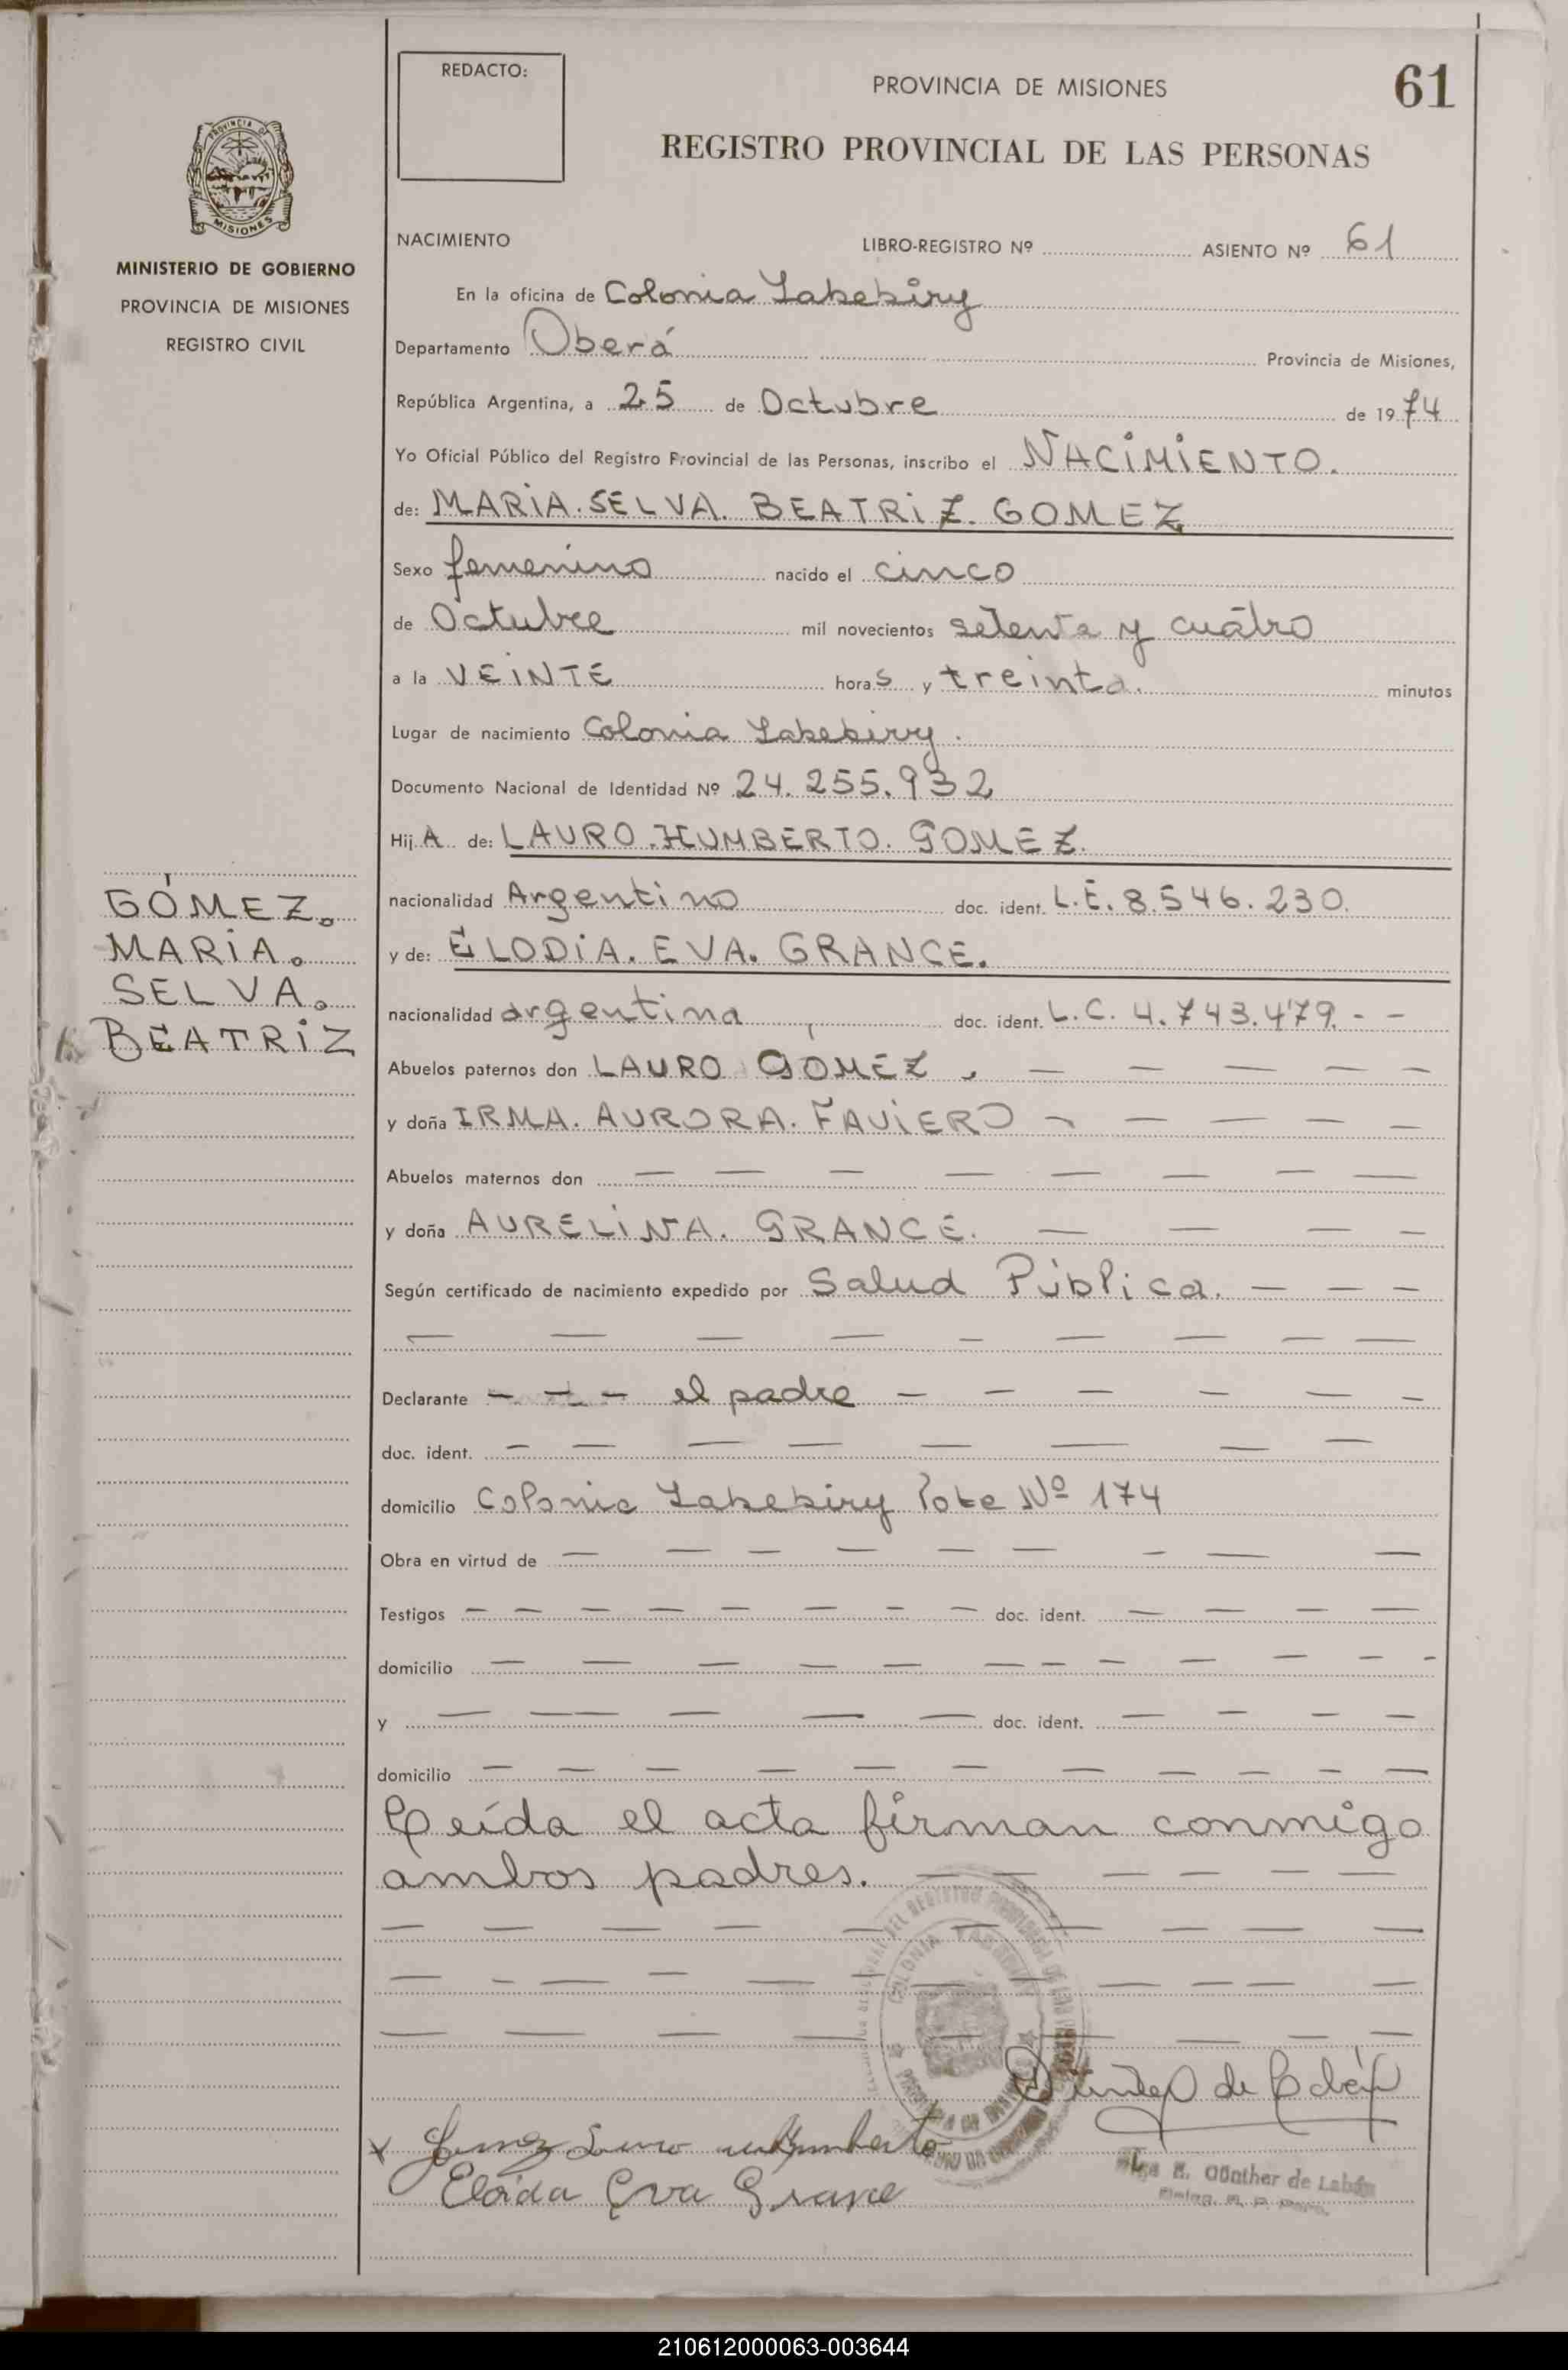 REDACTO:
PROVINCIA DE MISIONES
61
REGISTRO PROVINCIAL DE LAS PERSONAS
PROVINCIA D MISIONES
MINISTERIO DE GOBIERNO
PROVINCIA DE MISIONES
REGISTRO CIVIL
NACIMIENTO LIBRO-REGISTRO Nº ASIENTO Nº 61
En la oficina de Colonia Yabebiry
Departamento Oberá Provincia de Misiones,
República Argentina, a 25 de Octubre de 1974
Yo Oficial Público del Registro Provincial de las Personas, inscribo el NACIMIENTO.
de: MARIA. SELVA. BEATRIZ. GOMEZ
Sexo femenino nacido el cinco
de Octubre mil novecientos setenta y cuatro
a la VEINTE horas y treinta. minutos
Lugar de nacimiento Colonia Yabebiry.
Documento Nacional de Identidad Nº 24.255.932
HijA de: LAURO. HUMBERTO. GOMEZ.
nacionalidad Argentino doc. ident. L.E. 8.546.230.
y de: ELODIA. EVA. GRANCE.
nacionalidad argentina doc. ident. L.C. 4.743.479. - -
GÓMEZ.
MARIA.
SELVA.
BEATRIZ
Abuelos paternos don LAURO GOMEZ.
y doña IRMA. AURORA. FAVIERO
Abuelos maternos don
y doña AURELINA. GRANCE.
Según certificado de nacimiento expedido por Salud Pública.
Declarante - - - el padre
doc. ident.
domicilio Colonia Yabebiry lote Nº 174
Obra en virtud de
Testigos doc. ident.
domicilio
y doc. ident.
domicilio
Leída el acta firman conmigo
ambos padres.
COLONIA
de
x Gomez Lauro Humberto
Günther de Labán
Eloida Eva Grance
210612000063-003644